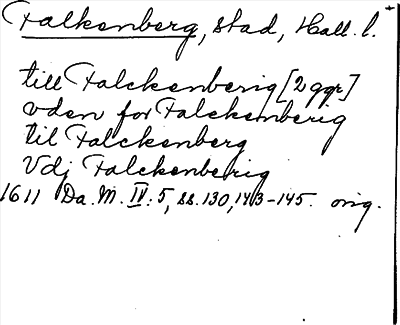 Falkenberg, stad, Hall. l.
till Falckenberig [2 ggr]
vden for Falckenberig
til Falckenberg
Vdj Falckenberig
1611 Da. M. IV: 5, ss. 130, 143-145. orig.